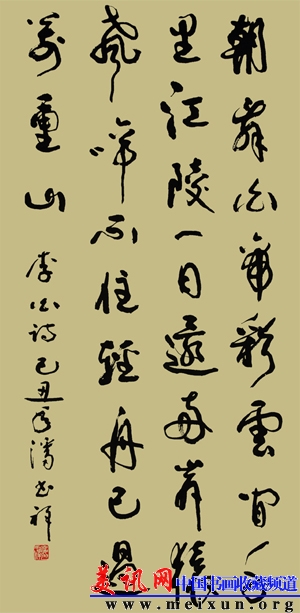 朝辭白帝彩雲間千
里江陵一日還兩岸猿
聲啼不住輕舟已過
萬重山 李白詩 己丑年 潘祥
美讯网 中国书画收藏频道
www.meixun.org